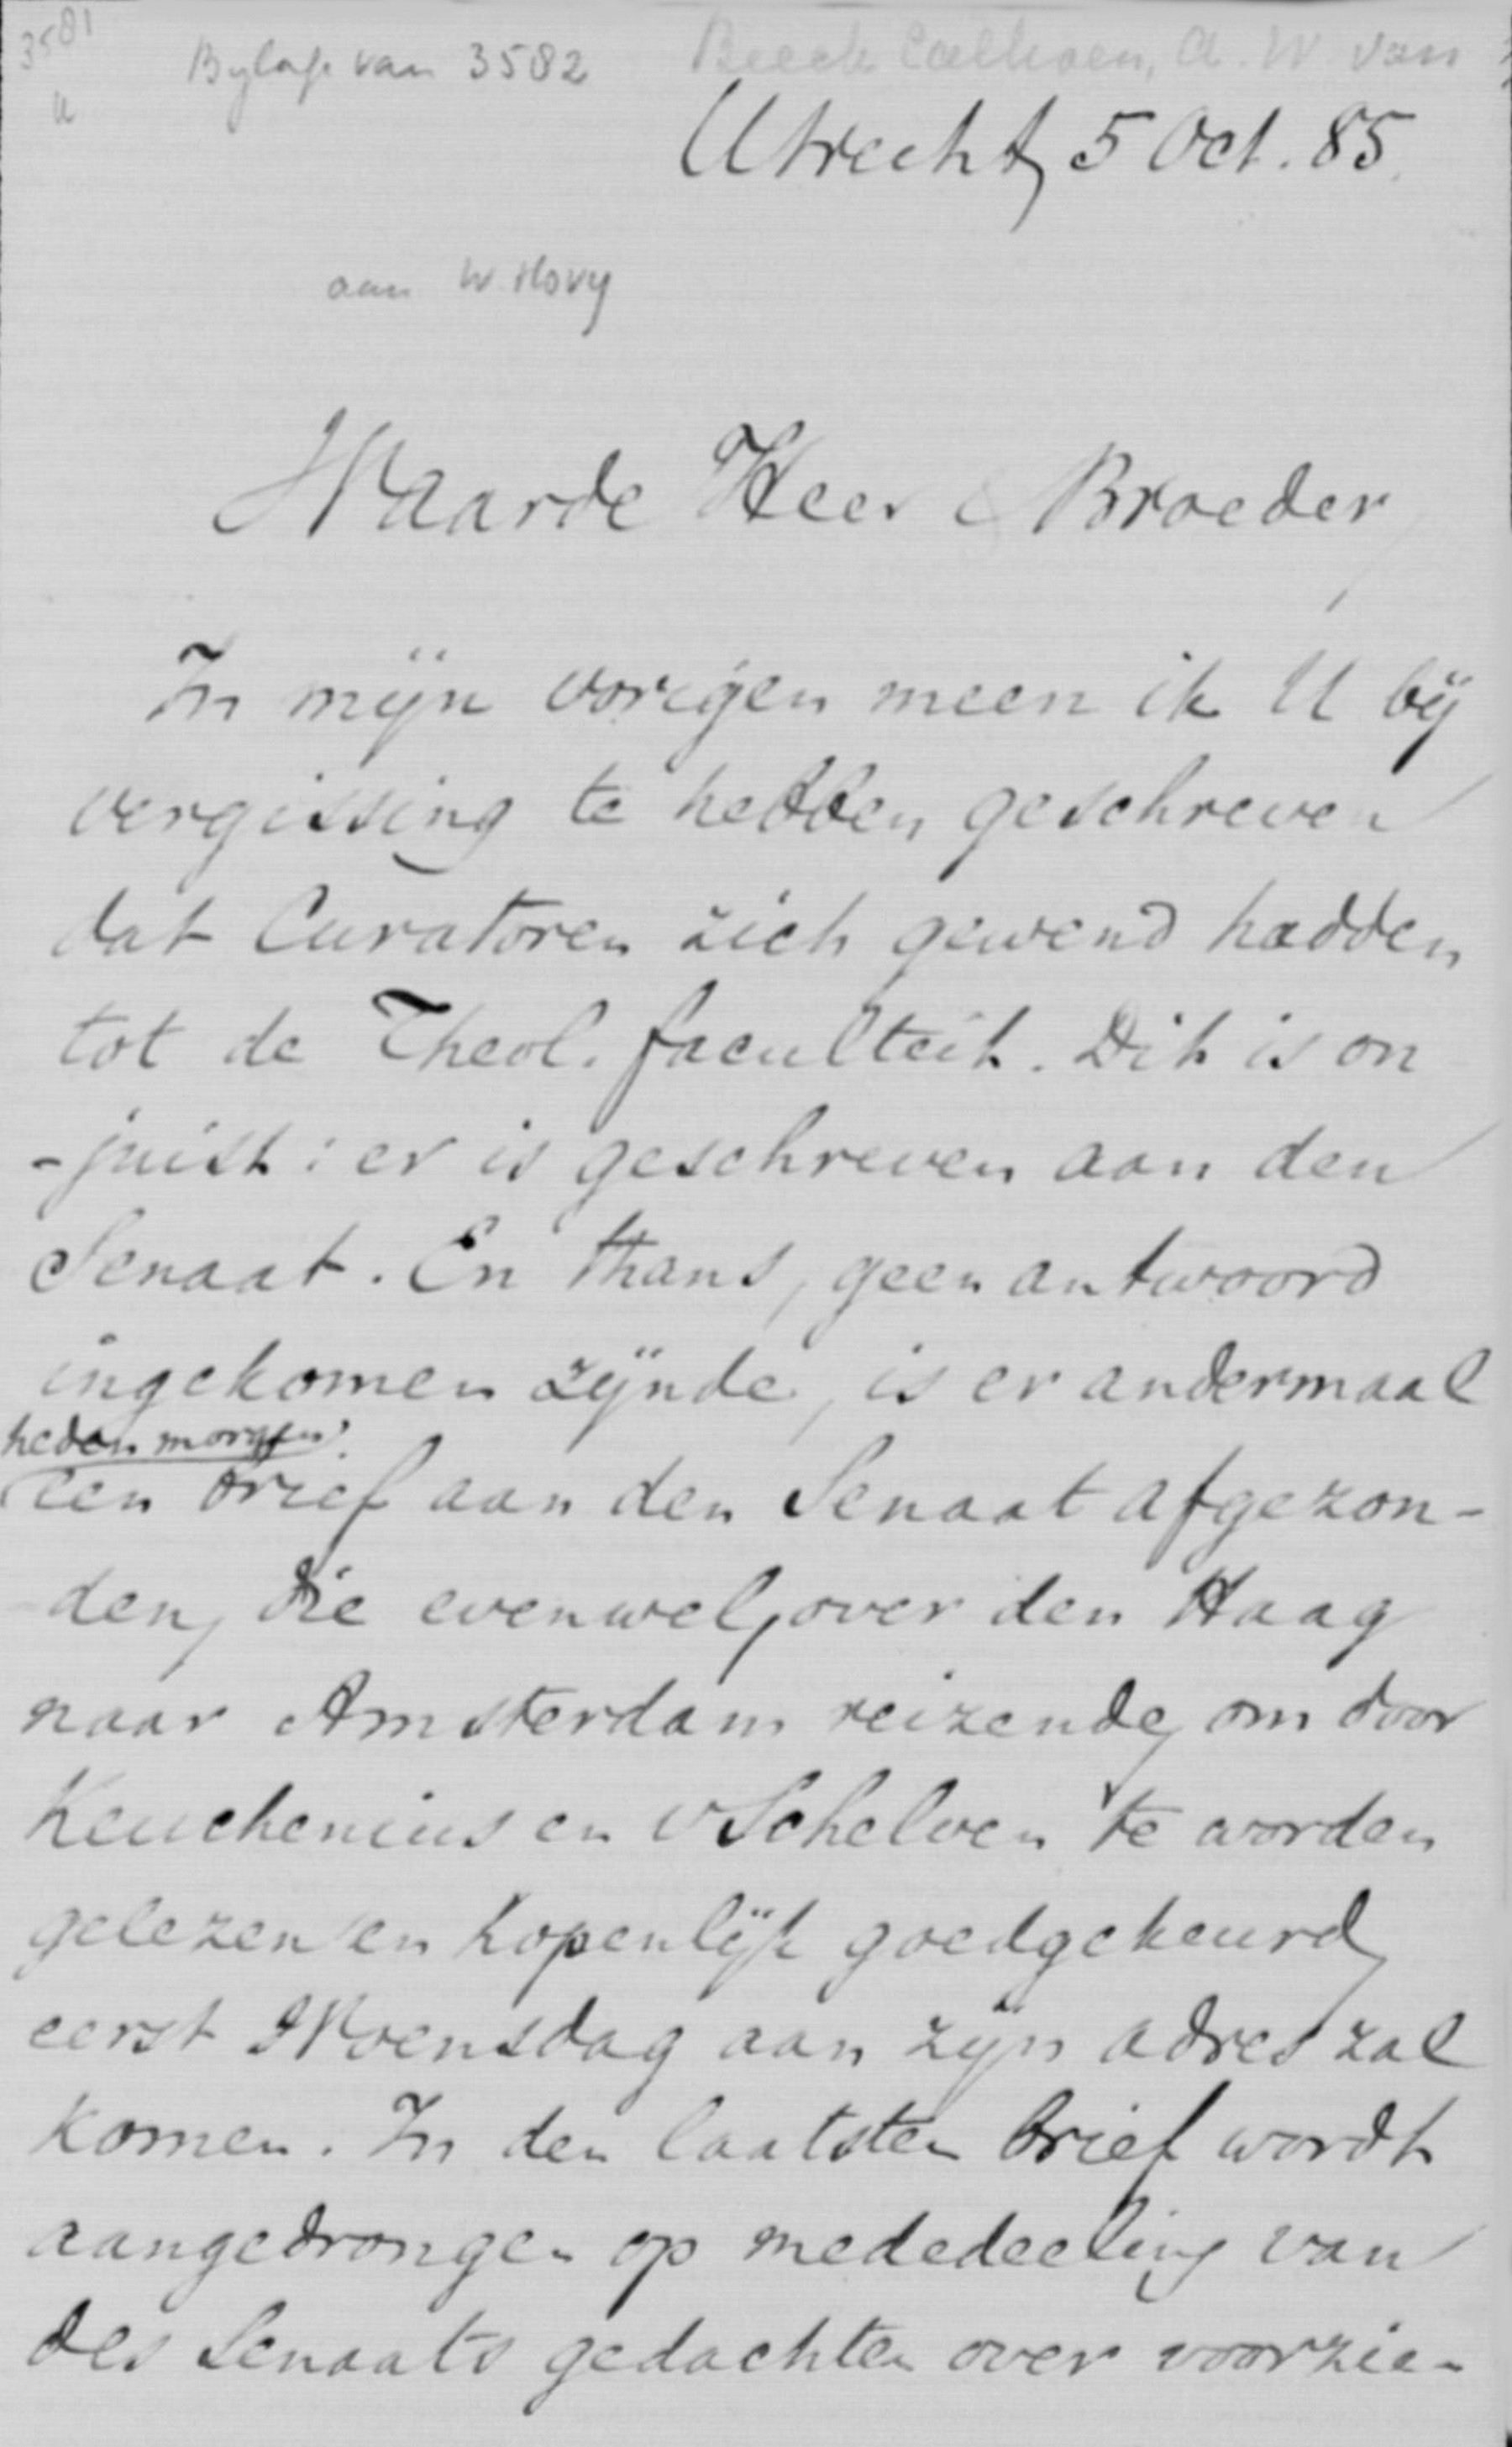 3581
Bylage van 3582
Beeck Calkoen, A. W. van
u
Utrecht, 5 Oct. 85.
aan W. Hovy
Waarde Heer & Broeder,
In mijn vorigen meen ik U bij
vergissing te hebben geschreven
dat Curatoren zich gewend hadden
tot de Theol. faculteit. Dit is on
-juist: er is geschreven aan den
Senaat. En thans, geen antwoord
ingekomen zijnde, is er andermaal
heden morgen
een brief aan den Senaat afgezon-
den, die evenwel, over den Haag
naar Amsterdam reizende, om door
Keuchenius en v Schelven te worden
gelezen en hopenlijk goedgekeurd,
eerst Woensdag aan zijn adres zal
komen. In den laatsten brief wordt
aangedrongen op mededeeling van
des Senaats gedachten over voorzie-